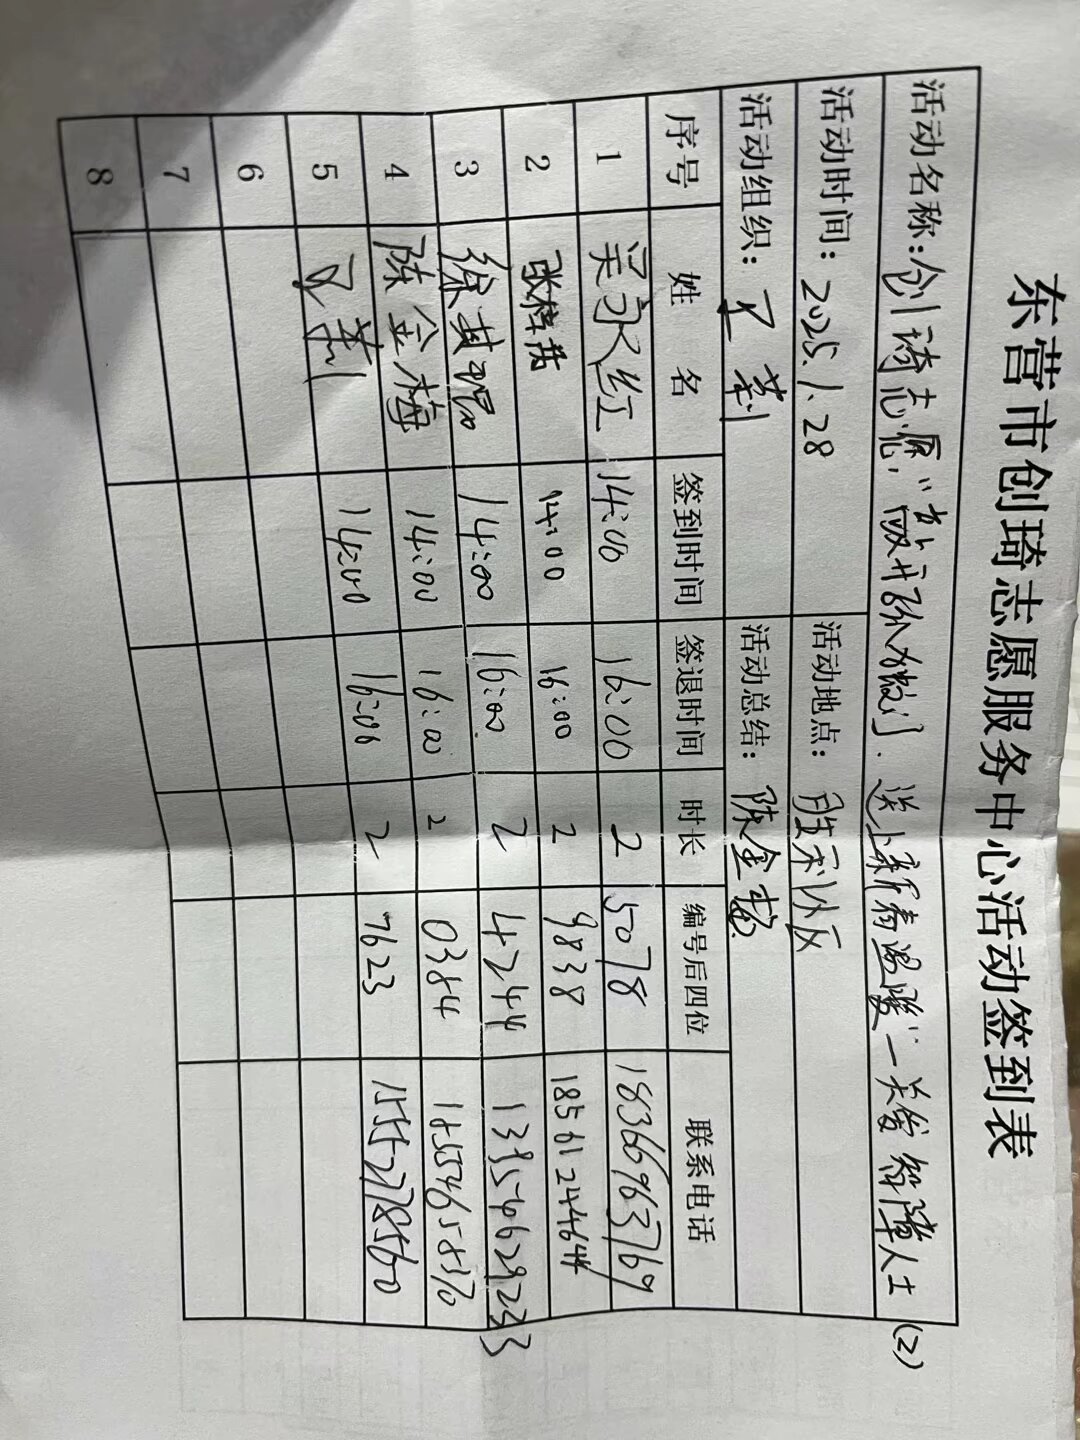 东营市创琦志愿服务中心活动签到表
活动名称:创琦志愿,"敲开门 送上新春温暖"一关爱智障人士(2)
活动时间:2025.1.28 活动地点:胜利小区
活动组织:王莉 活动总结:陈金梅
序号 姓名 签到时间 签退时间 时长 编号后四位 联系电话
1 吴永红 14:00 16:00 2 5078 18366963769
2 张 14:00 16:00 2 9838 18561244644
3 徐 14:00 16:00 2 4244 13954629233
4 陈金梅 14:00 16:00 2 0384 18554658370
5 王莉 14:00 16:00 2 7623 1555278560
6
7
8